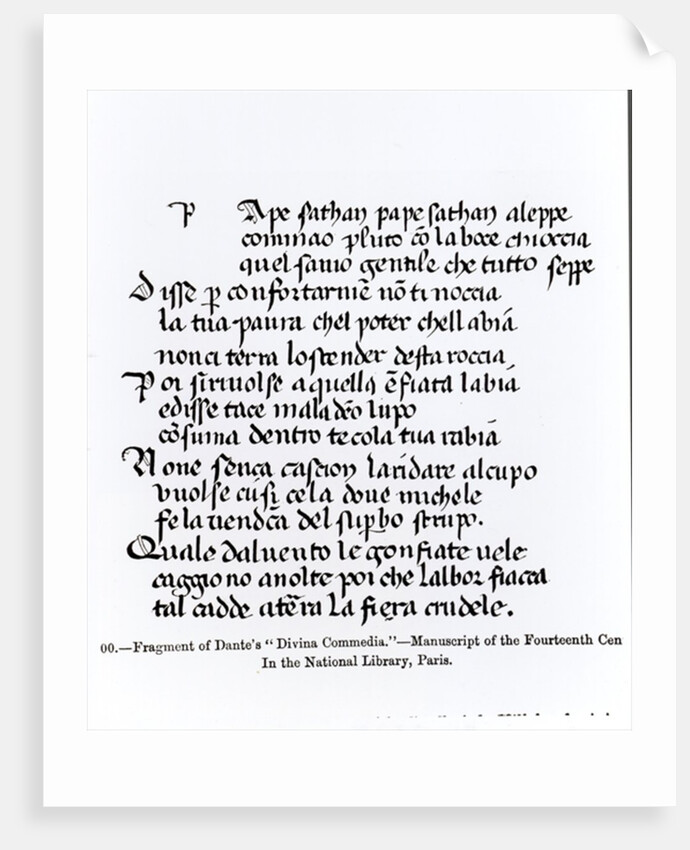 P Ape sathan pape sathan aleppe
cominao pluto cō la boce chioccia
quel sauio gentile che tutto seppe
Disse p confortarmē nō ti noccia
la tua paura chel poter chell abiā
non ci terra lo scender desta roccia
Poi si riuolse a quella ēfiata labiā
e disse tace maladēo lupo
cōsuma dentro te cola tua rabiā
None senca cascion landare al cupo
vuolse cusi cela doue michele
fe la uendcā del supbo strupo.
Quale dal uento le gonfiate uele
caggiono anolte poi che lalbor fiacca
tal cadde atēra la fiera crudele.
00.—Fragment of Dante's "Divina Commedia."—Manuscript of the Fourteenth Cen
In the National Library, Paris.